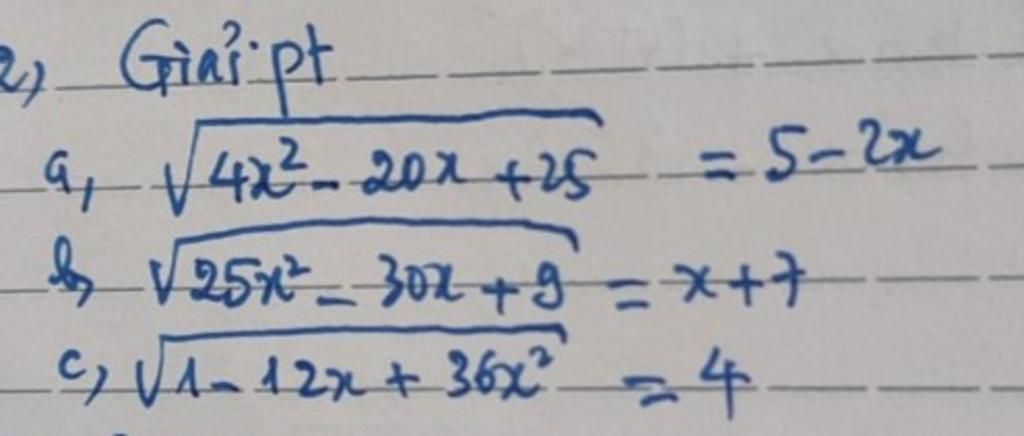 2) Giải pt
a, √(4x² - 20x + 25) = 5 - 2x
b, √(25x² - 30x + 9) = x + 7
c, √(1 - 12x + 36x²) = 4